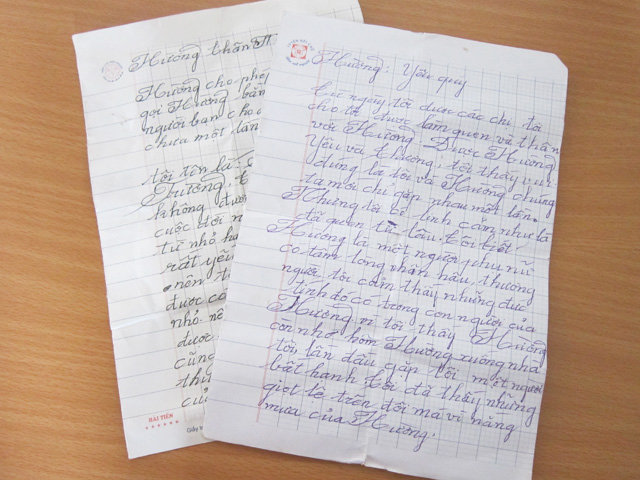 Hương thân
Hương cho phé
gọi Hương bằn
người bạn cho d
chưa một lần
tôi tin là
Hương, t
không đươ
cuộc đời n
từ nhỏ
rất yêu
nên t
được co
nhỏ nê
được
cũng
thu
của
HẢI TIẾN
Giấy
Hương: yêu quy
Từ ngày tôi được các chị, tôi
cho tôi được làm quen và thân
với Hương Được Hương
yêu và thương, tôi thấy vui
đúng là tôi và Hương chúng
ta mới chỉ gặp nhau một lần.
Nhưng tôi có linh cảm như là
đã quen từ lâu tôi biết
Hương là một người phụ nữ
có tấm lòng nhân hâu, thương
người tôi cảm thấy những đức
tính đó có trong con người của
Hương n tôi thấy Hương
còn nhớ hôm Hương xuống nhà
tôi, lần đầu gặp tôi một người
bất hạnh tôi đã thấy những
giọt lệ trên đôi má vì nắng
mưa của Hương.